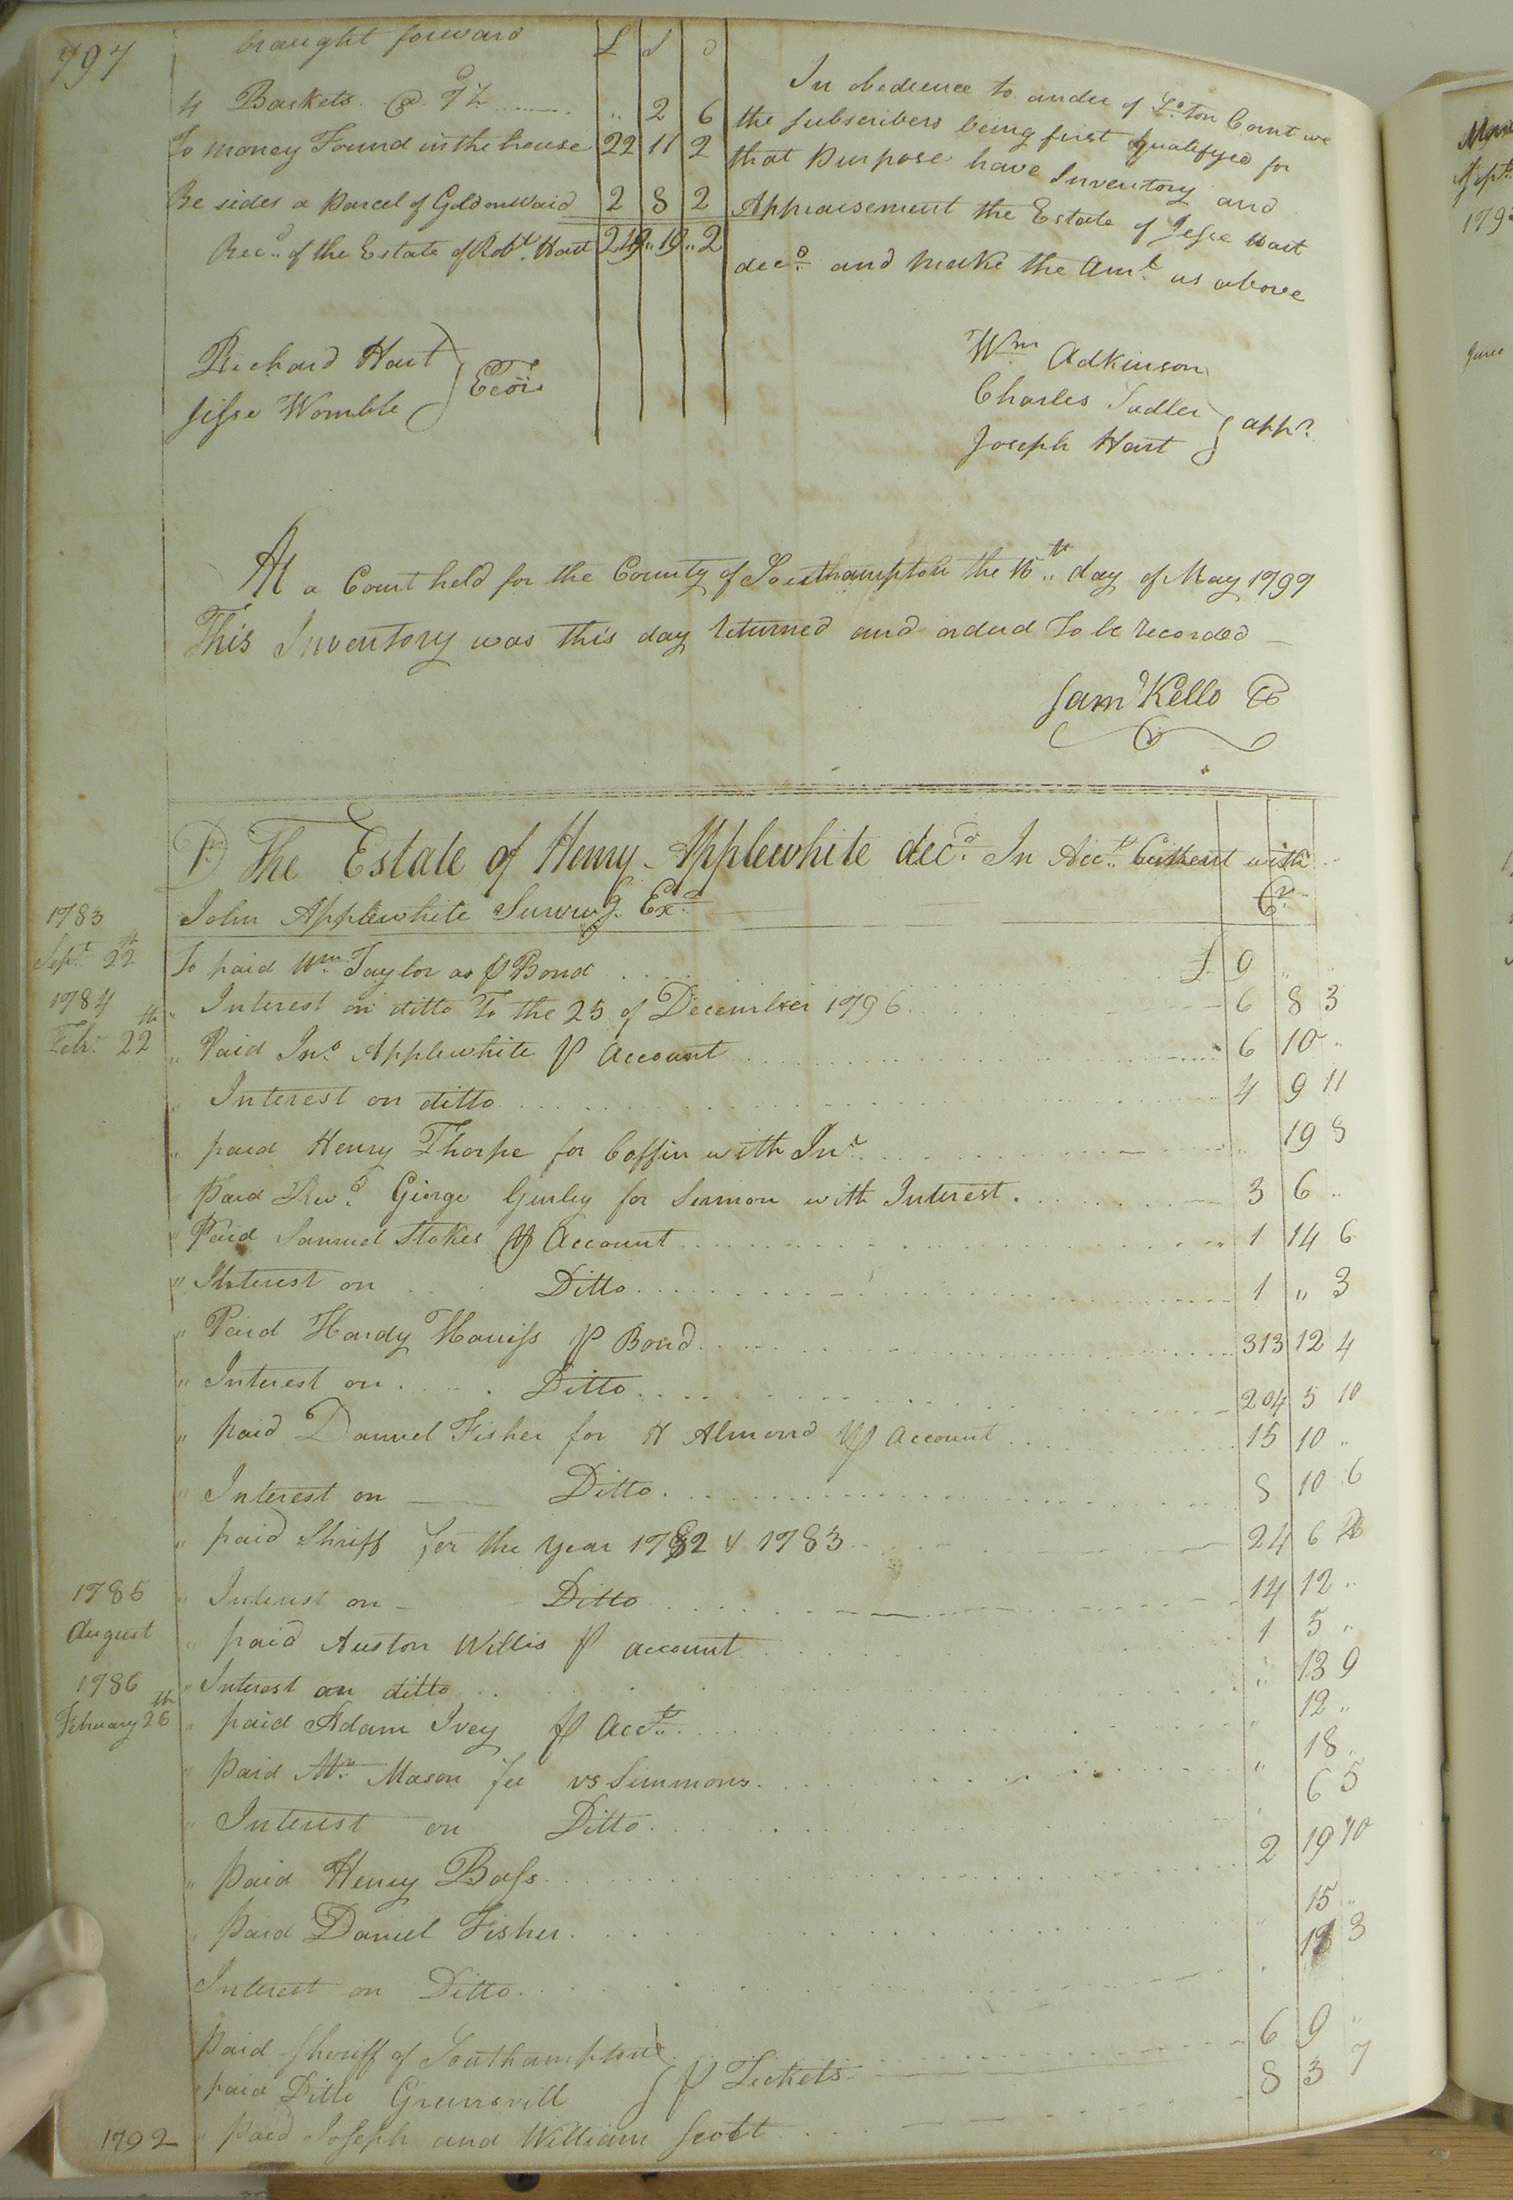 797
brought forward £ S D
4 Baskets @ 7½ " 2 6
To money Found in the house 22 11 2
Be sides a Parcel of Gold on waid 2 8 2
Recd. of the Estate of Robt. Hart 249 " 19 " 2
In obedience to order of So.ton Court we
the Subscribers being first qualifyed for
that Purpose have Inventory and
Appraisement the Estate of Jesse Hart
decd. and make the Amt. as above
Richard Hart
Jesse Womble } Ecors
Wm Adkinson
Charles Sadler
Joseph Hart } appr.
At a Court held for the County of Southampton the 15th day of May 1797
This Inventory was this day returned and orderd To be recorded
Saml Kello CC
Dr The Estate of Henry Applewhite decd. In Acct. Current with
1783 John Applewhite Survivg. Exr. Cr.
Sept 22th To paid Wm Taylor as ⅌ Bond £ 9 " "
1784 " Interest on ditto To the 25 of December 1796 6 8 3
Feb. 22th " Paid Jno. Applewhite ⅌ Account 6 10 "
" Interest on ditto 4 9 11
" paid Henry Thorpe for Coffin with Int. " 19 8
" Paid Revd. George Gurley for Sermon with Interest 3 6 "
" Paid Samuel Stokes ⅌ Account 1 14 6
" Interest on Ditto 1 " 3
" Paid Hardy Harriss ⅌ Bond 313 12 4
" Interest on Ditto 204 5 10
" paid Danuel Fisher for H Almond ⅌ Account 15 10 "
" Interest on Ditto 8 10 6
" paid Shriff for the year 1782 & 1783 24 6
1785 " Interest on Ditto 14 12 "
August " paid Auston Willis ⅌ account 1 5 "
1786 " Interest on ditto " 13 9
February 26th " paid Adam Ivey ⅌ Acct. " 12 "
" paid Mr. Mason fee vs Simmons " 18 "
" Interest on Ditto " 6 5
" paid Henry Bass 2 19 10
" paid Daniel Fisher " 15 "
Interest on Ditto " 3
paid Sheriff of Southampton
" paid Ditto Greensvill } ⅌ Tickets 6 9 "
1792 " paid Joseph and William Scott 8 3 7